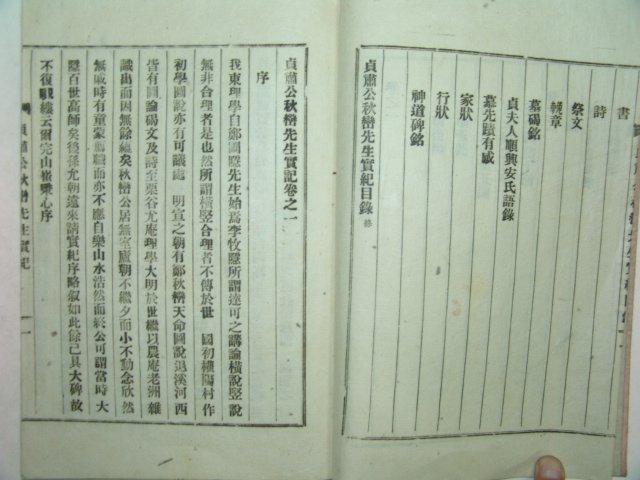 書
詩
祭文
輓章
墓碣銘
貞夫人順興安氏語錄
墓先蹟有感
家狀
行狀
神道碑銘
貞肅公秋巒先生實紀目錄 終
貞肅公秋巒先生實記卷之一
序
我東理學自鄭圃隱先生始爲李牧隱所謂達可之講論橫說竪說
無非合理者是也然所謂橫竪合理者不傳於世 國初權陽村作
初學圖說亦有可議處 明宣之朝有鄭秋巒天命圖說退溪河西
皆有圖論碣文及詩至栗谷尤庵理學大明於世繼以農庵老洲雜
識出而因無餘蘊矣秋巒公居無室廬朝不繼夕而小不動念欣然
無戚時有童蒙薦職而亦不應自樂山水浩然而終公可謂當時大
隱百世高師矣後孫允朝遠來請實紀序略叙如此餘已具大碑故
不復覼縷云爾完山崔秉心序
貞肅公秋巒先生實記